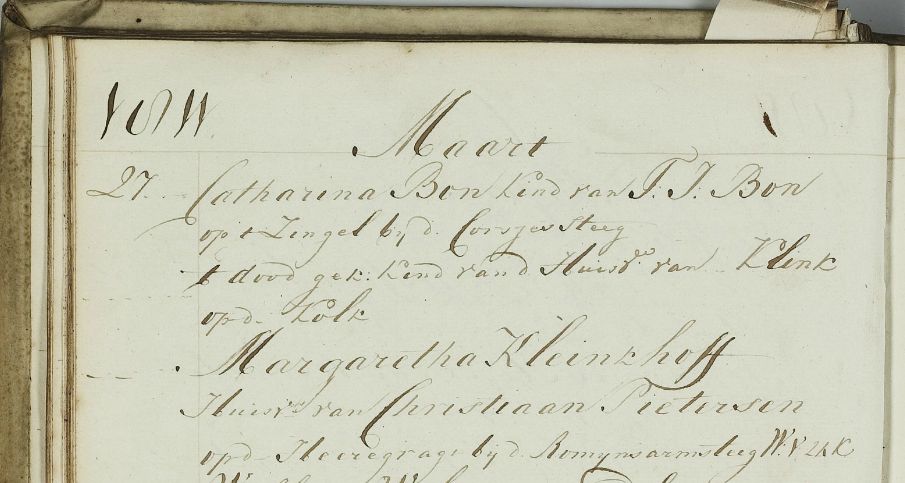 Maart
27. Catharina Bon kind van F. J. Bon
op t Zingel by d. Corsjes Steeg
t dood gek: kind van d Huisvr. van Klink
op d. Kolk
Margaretha Kleinkhoff
Huisvr. van Christiaan Pietersen
op d Heeregragt by d. Romynsarmsteeg W. V